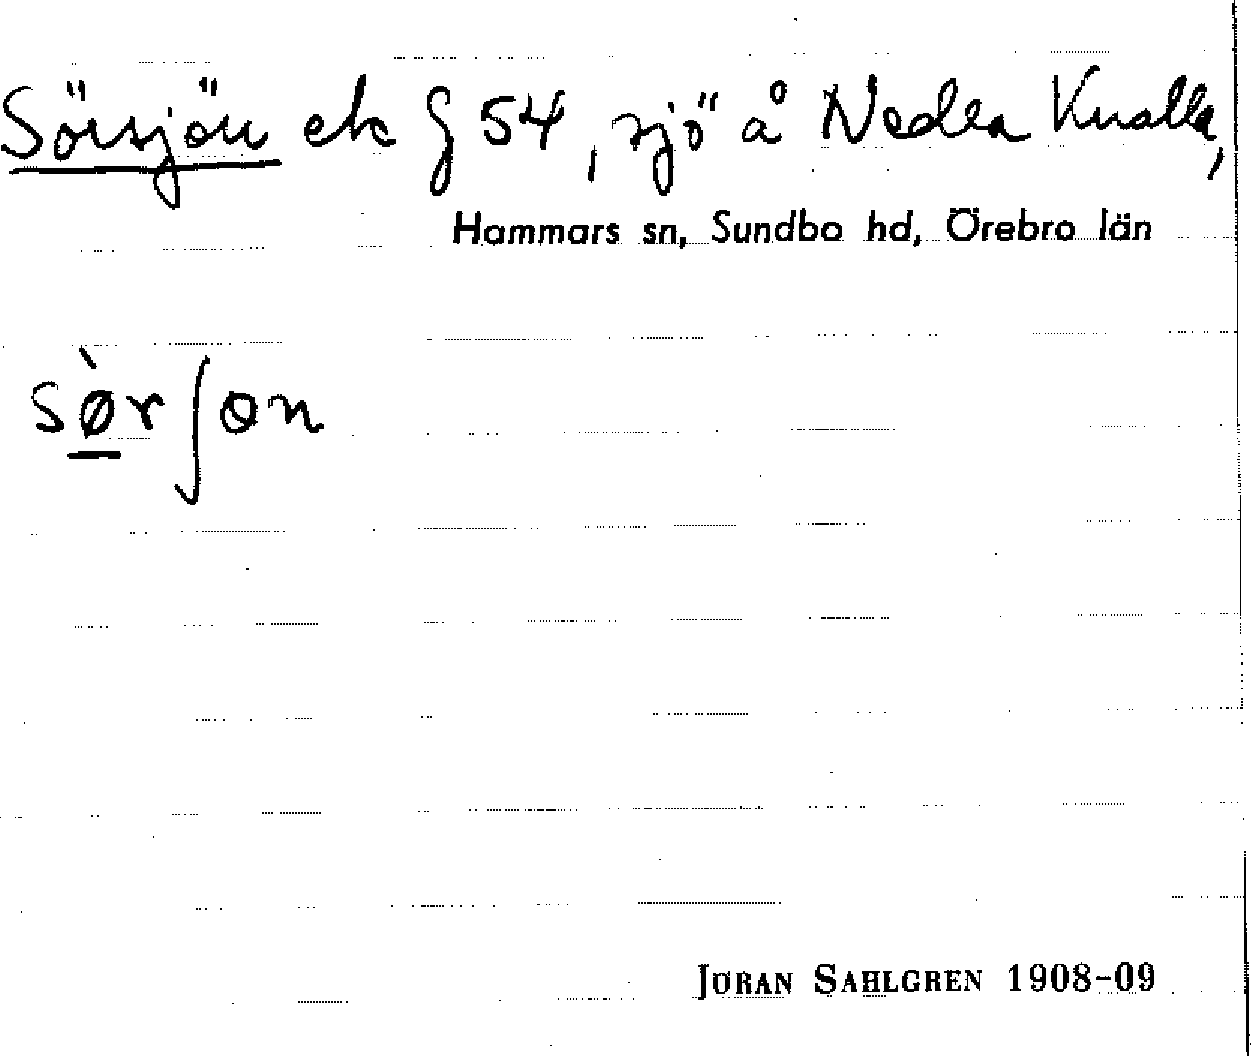 Sörsjön ek § 54, sjö å Nedra Knalla,
Hammars sn, Sundbo hd, Örebro län
sø̀rʃøn
JÖRAN SAHLGREN 1908-09